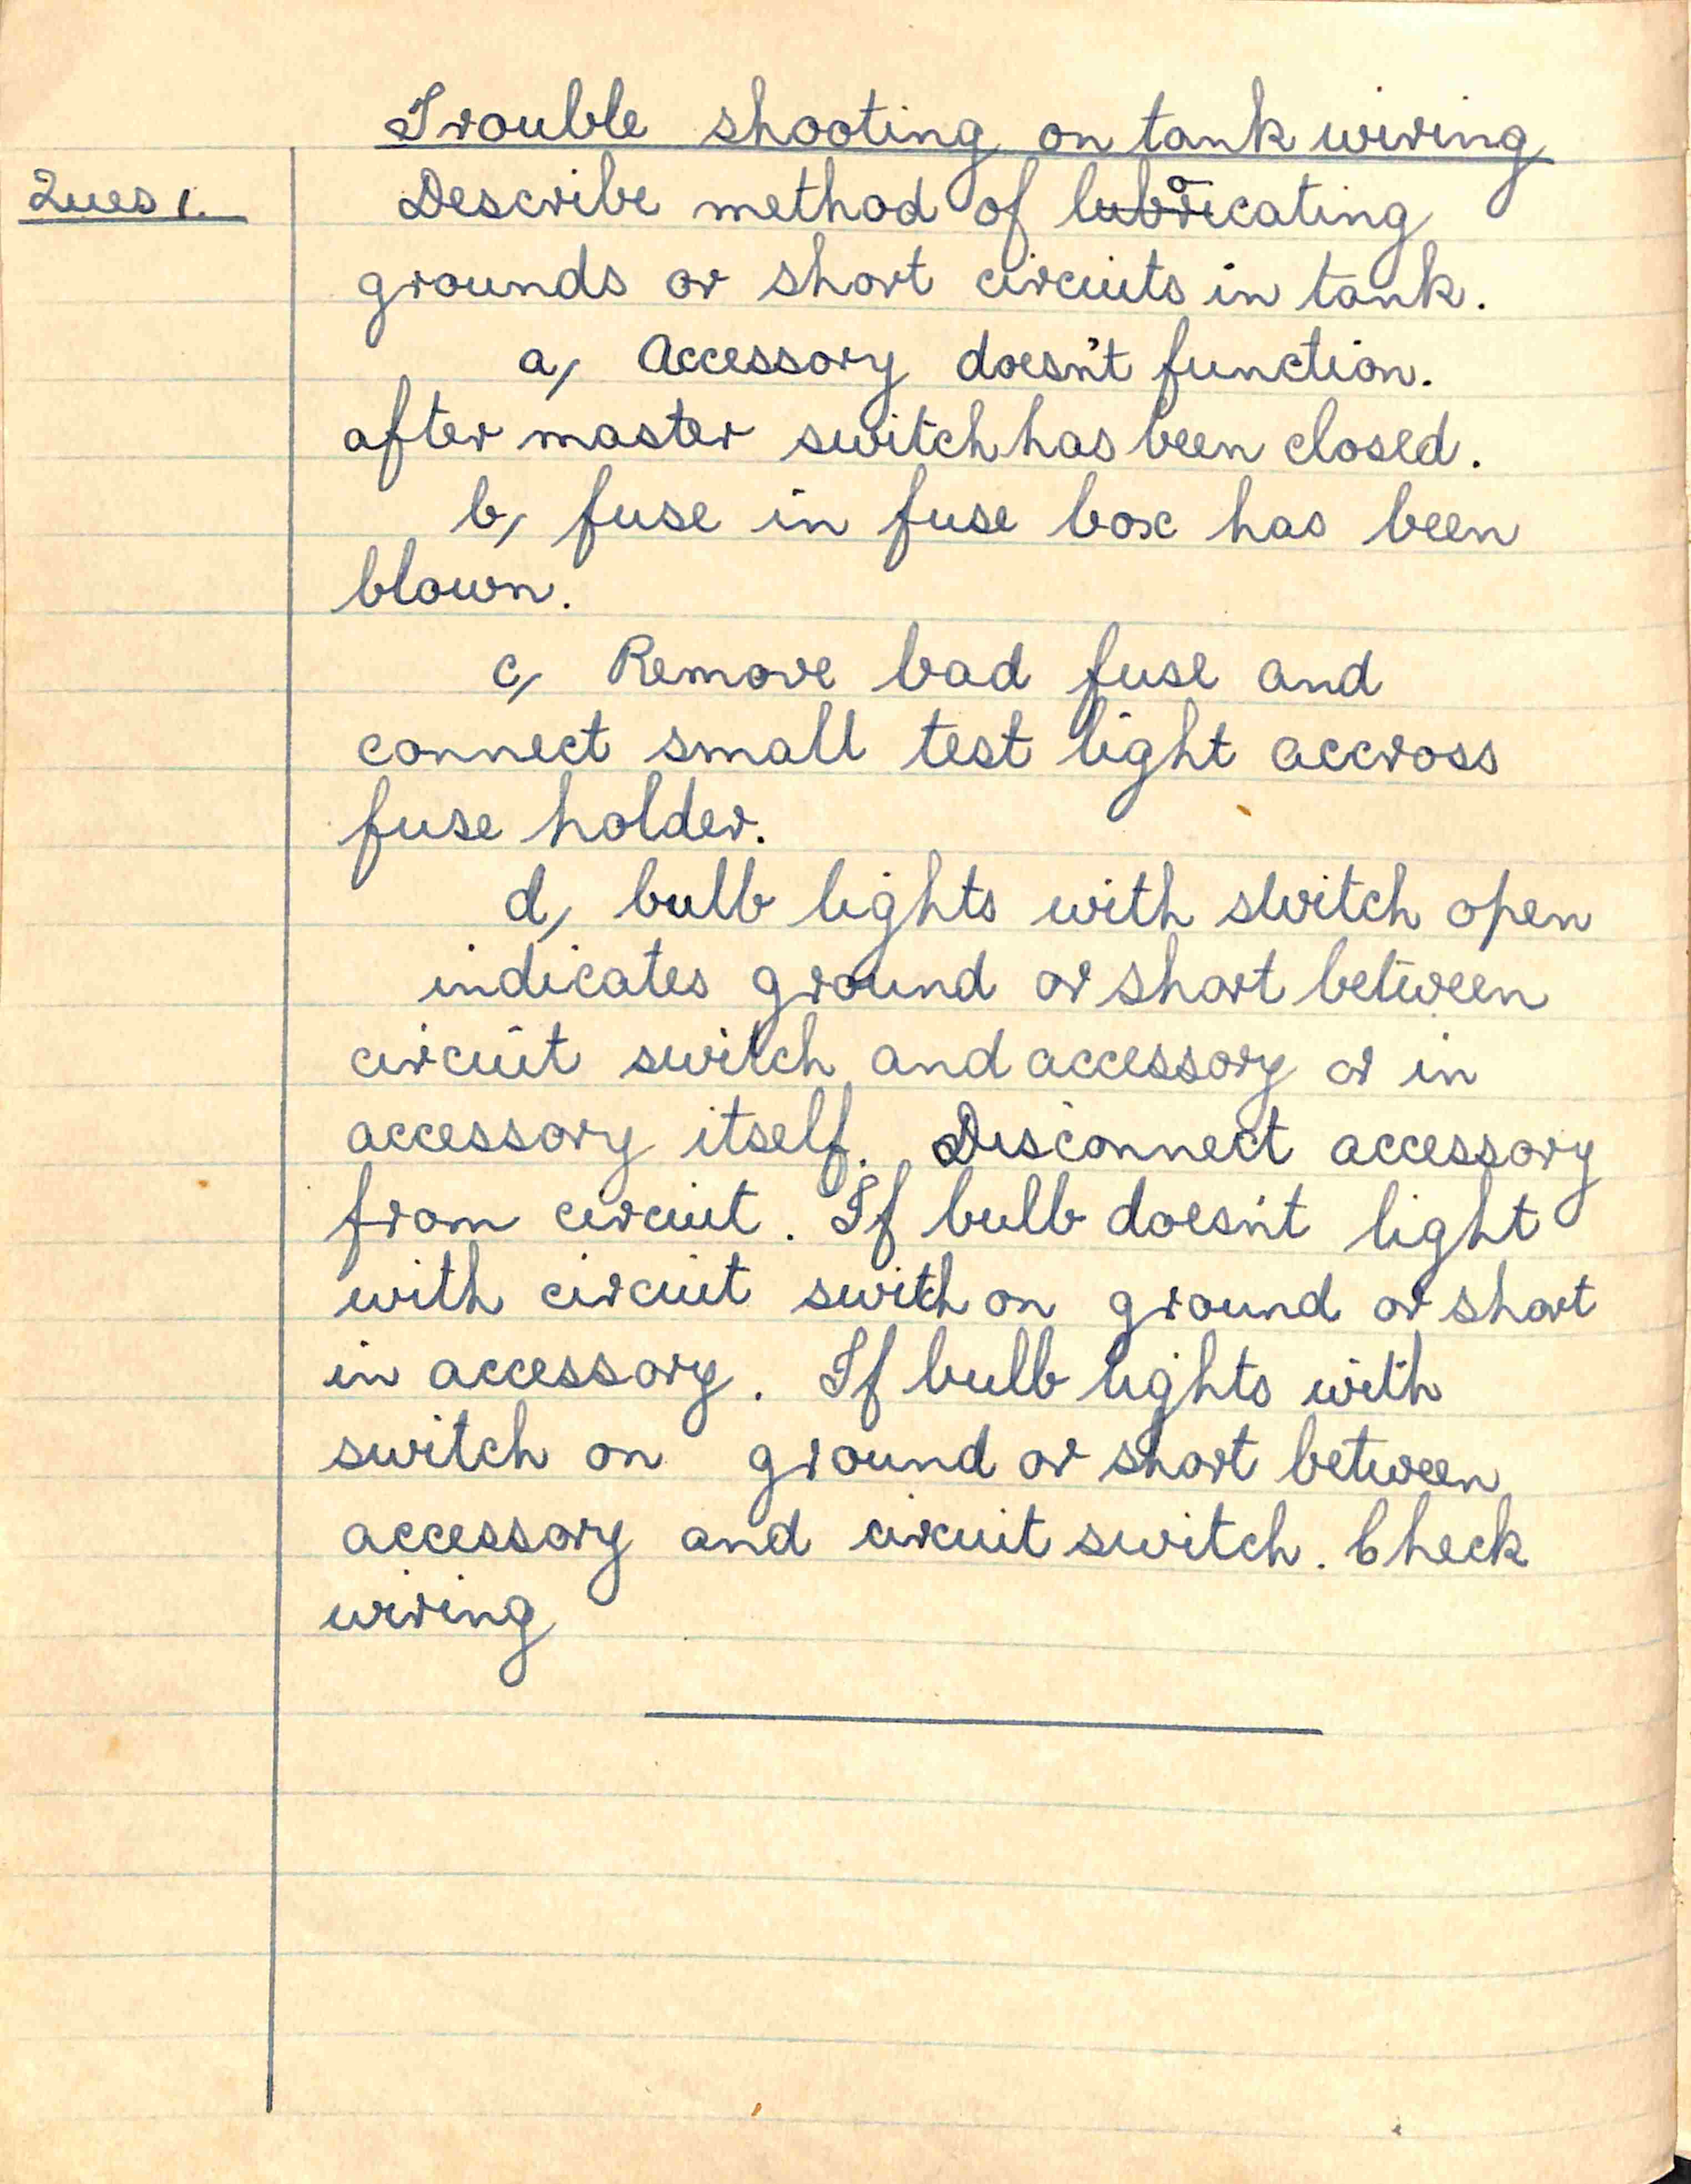 Trouble shooting on tank wiring
Ques 1. Describe method of locating
grounds or short circuits in tank.
a, Accessory doesn't function.
after master switch has been closed.
b, fuse in fuse box has been
blown.
c, Remove bad fuse and
connect small test light accross
fuse holder.
d, bulb lights with switch open
indicates ground or short between
circuit switch and accessory or in
accessory itself. Disconnect accessory
from circuit. If bulb doesn't light
with circuit swith on ground or short
in accessory. If bulb lights with
switch on ground or short between
accessory and circuit switch. Check
wiring